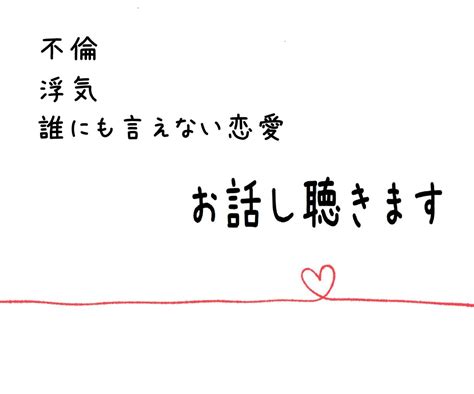 不倫
浮気
誰にも言えない恋愛
お話し聴きます